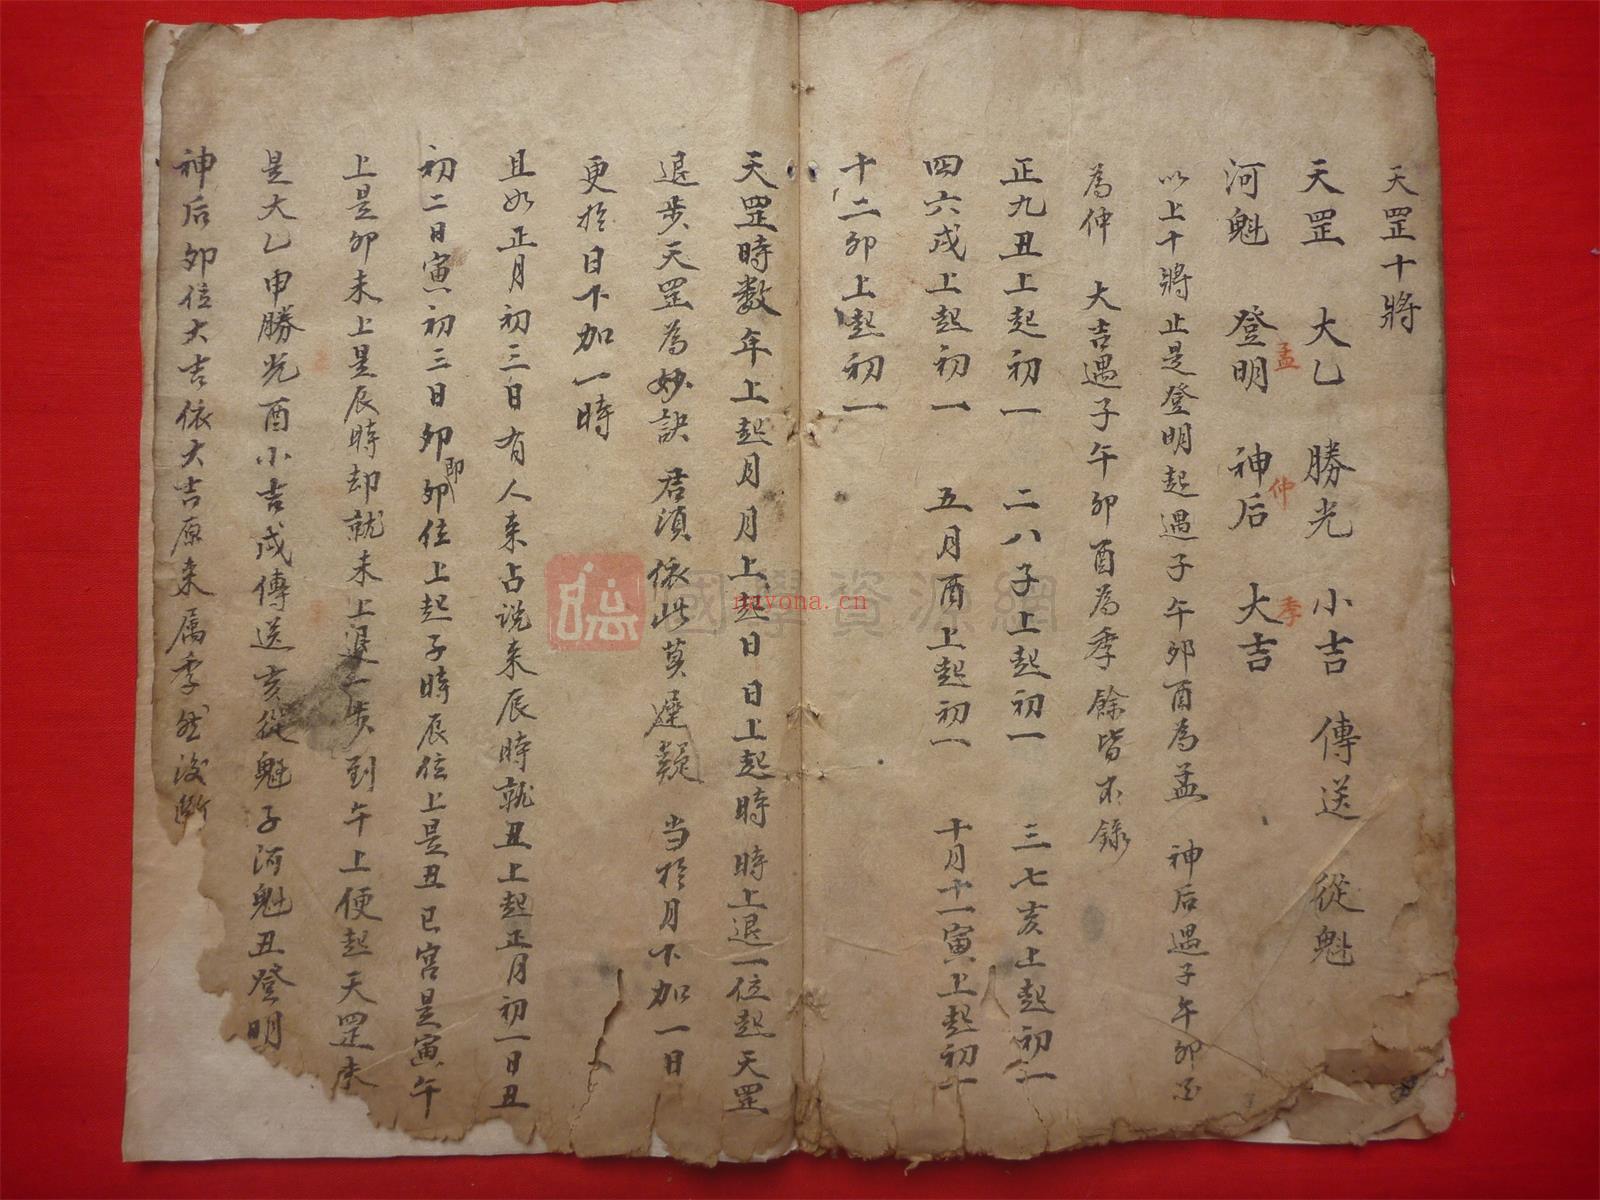 天罡十將
天罡 大乙 勝光 小吉 傳送 從魁
河魁 登明 神后 大吉
孟 仲 季
以上十將止是登明起遇子午卯酉為孟 神后遇子午卯酉
為仲 大吉遇子午卯酉為季餘皆不錄
正九丑上起初一 二八子上起初一 三七亥上起初一
四六戌上起初一 五月酉上起初一 十月十一寅上起初一
十二卯上起初一
天罡時数年上起月月上起日日上起時時上退一位起天罡
退步天罡為妙訣君須依此莫違疑 当於月下加一日
更於日下加一時
且如正月初三日有人来占说来辰時就丑上起正月初一日丑
初二日寅初三日卯即卯位上起子時辰位上是丑巳宮是寅午
上是卯未上是辰時却就未上退一步到午上便起天罡未
是大乙申勝光酉小吉戌傳送亥從魁子河魁丑登明
神后卯位大吉依大吉原来属季然後断
國學資源網
nayona.cn